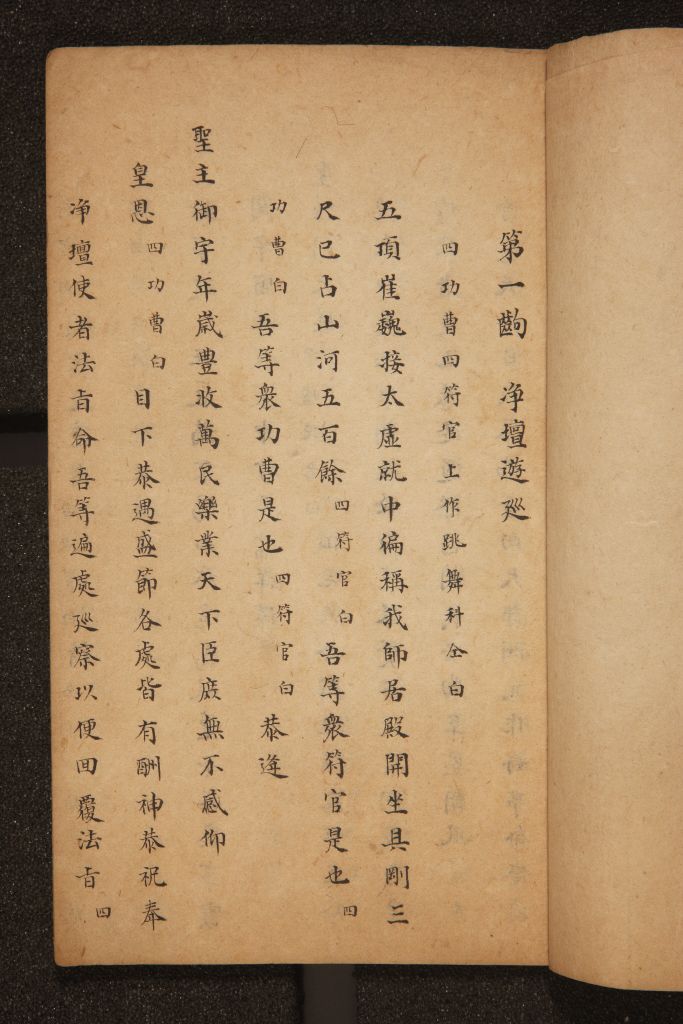 第一齣　净壇遊廵
四功曹四符官上作跳舞科仝白
五頂崔巍接太虛就中徧稱我師居殿開坐具剛三
尺已占山河五百餘四符官白吾等衆符官是也四
功曹白吾等衆功曹是也四符官白恭逄
聖主御宇年歲豊收萬民樂業天下臣庻無不感仰
皇恩四功曹白目下恭遇盛節各處皆有酬神恭祝奉
净壇使者法旨命吾等遍處廵察以便回覆法旨四